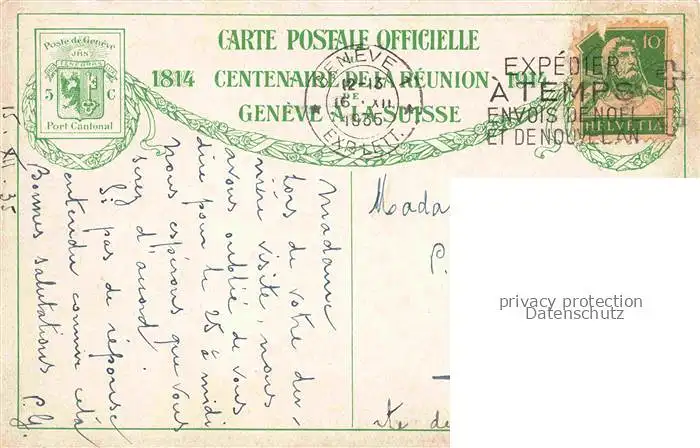 CARTE POSTALE OFFICIELLE
1814 CENTENAIRE DE LA RÉUNION 1914
GENÈVE À LA SUISSE
Poste de Genève
5 C
Port Cantonal
GENÈVE
12-13
16. XII
1935
EXP. LETT.
EXPÉDIER
À TEMPS
ENVOIS DE NOËL
ET DE NOUVEL AN
10
HELVETIA
15. XII. 35
Madame
Lors de votre der-
nière visite, nous
avons oublié de vous
dire pour le 25 à midi
nous espérons que vous
serez d'accord
Si pas de réponse
entendu comme cela
Bonnes salutations P.G.
Mada
P.
de
privacy protection
Datenschutz